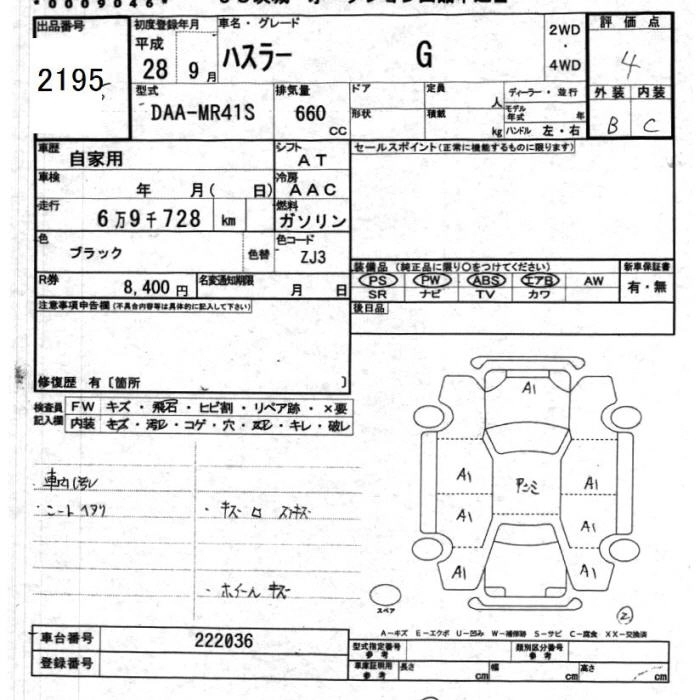 出品番号 初度登録年月 車名・グレード 2WD・4WD 評価点
2195 平成 28 9月 ハスラー G 4
型式 排気量 ドア 定員 人 ディーラー・並行 外装 内装
DAA-MR41S 660 CC 形状 積載 kg モデル年式 年 ハンドル 左・右 B C
車歴 自家用 シフト AT セールスポイント(正常に機能するものに限ります)
車検 年 月( 日) 冷房 AAC
走行 6万9千728 km 燃料 ガソリン
色 ブラック 色替 色コード ZJ3
装備品 (純正品に限り○をつけてください) 新車保証書
PS PW ABS エアB AW 有・無
SR ナビ TV カワ
R券 8,400円 名変通知期限 月 日
後日品
注意事項申告欄(不具合内容等は具体的に記入して下さい)
修復歴 有〔箇所 〕
検査員記入欄 FW キズ・飛石・ヒビ割・リペア跡・×要
内装 キズ・汚レ・コゲ・穴・ヌレ・キレ・破レ
A1
A1 A1
A1 A1
A1 A1
・車内汚レ
・シートヘタリ ・キズ
・ホイールキズ
スペア
②
A-キズ E-エクボ U-凹み W-補修跡 S-サビ C-腐食 XX-交換済
車台番号 222036 型式指定番号 参考 類別区分番号 参考
登録番号 車庫証明用 参考 長さ cm 幅 cm 高さ cm